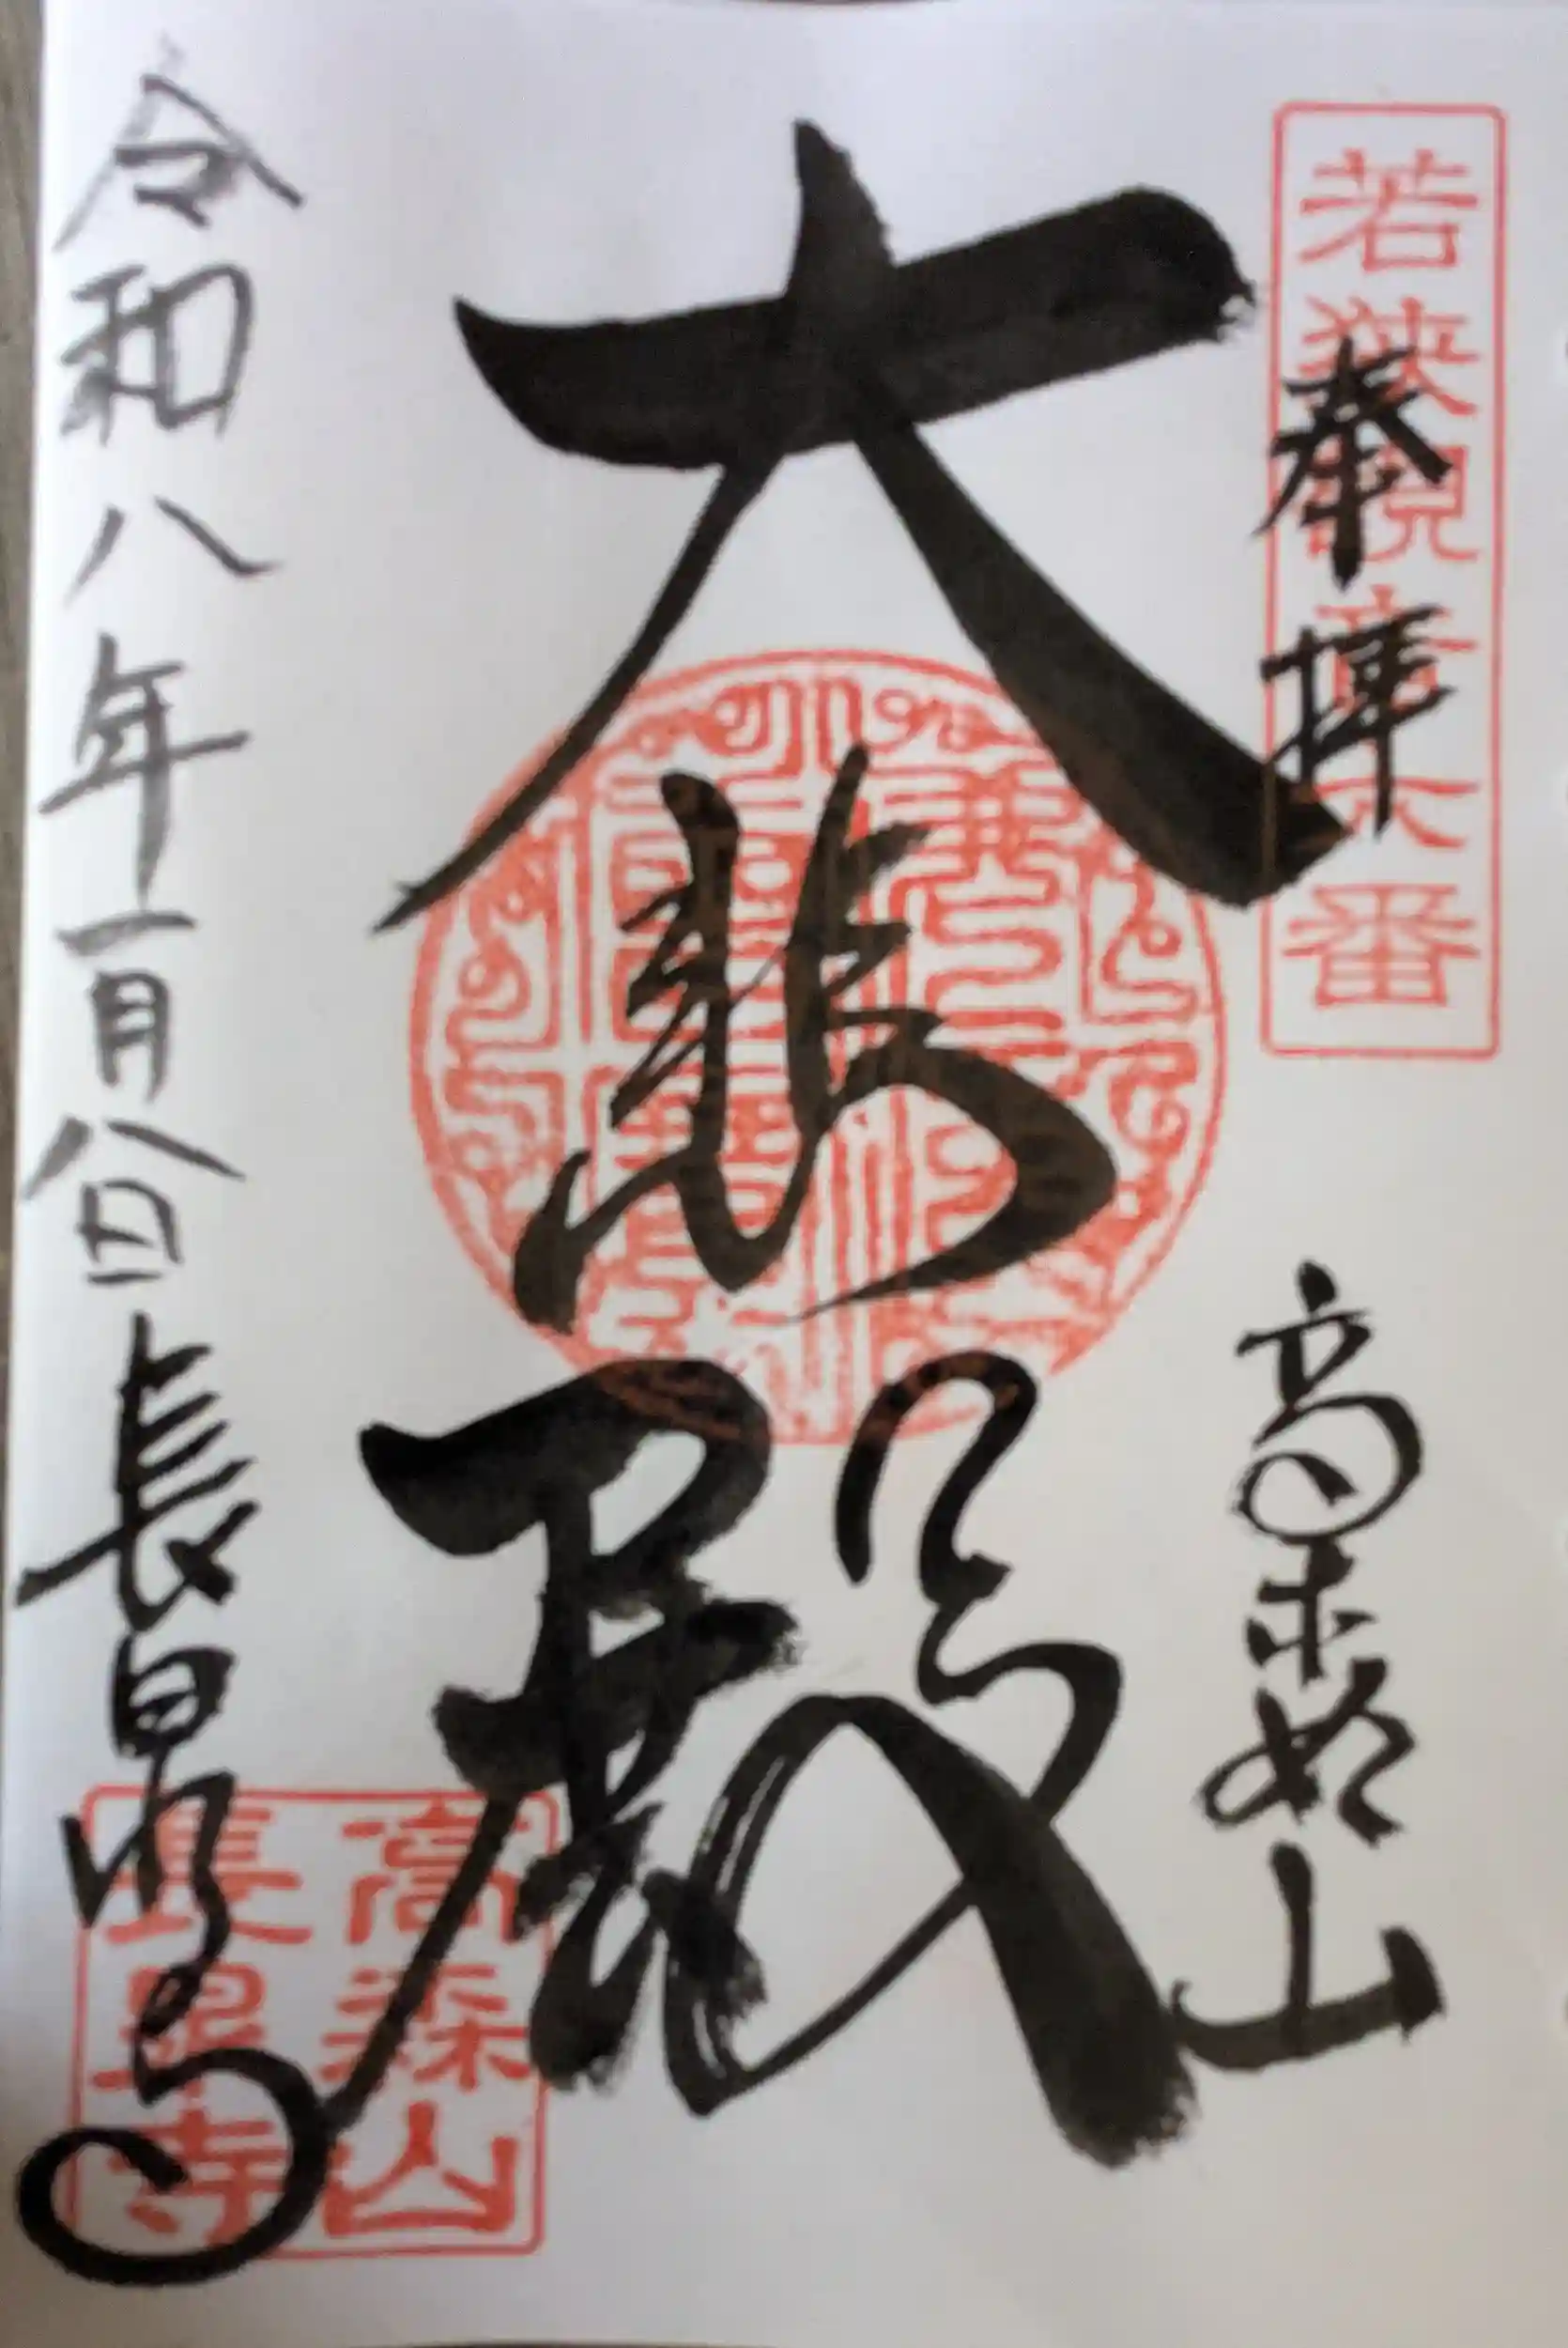 若狭観音六番
奉拝
高森山
大悲殿
令和八年一月八日
長泉寺
高森山
長泉寺